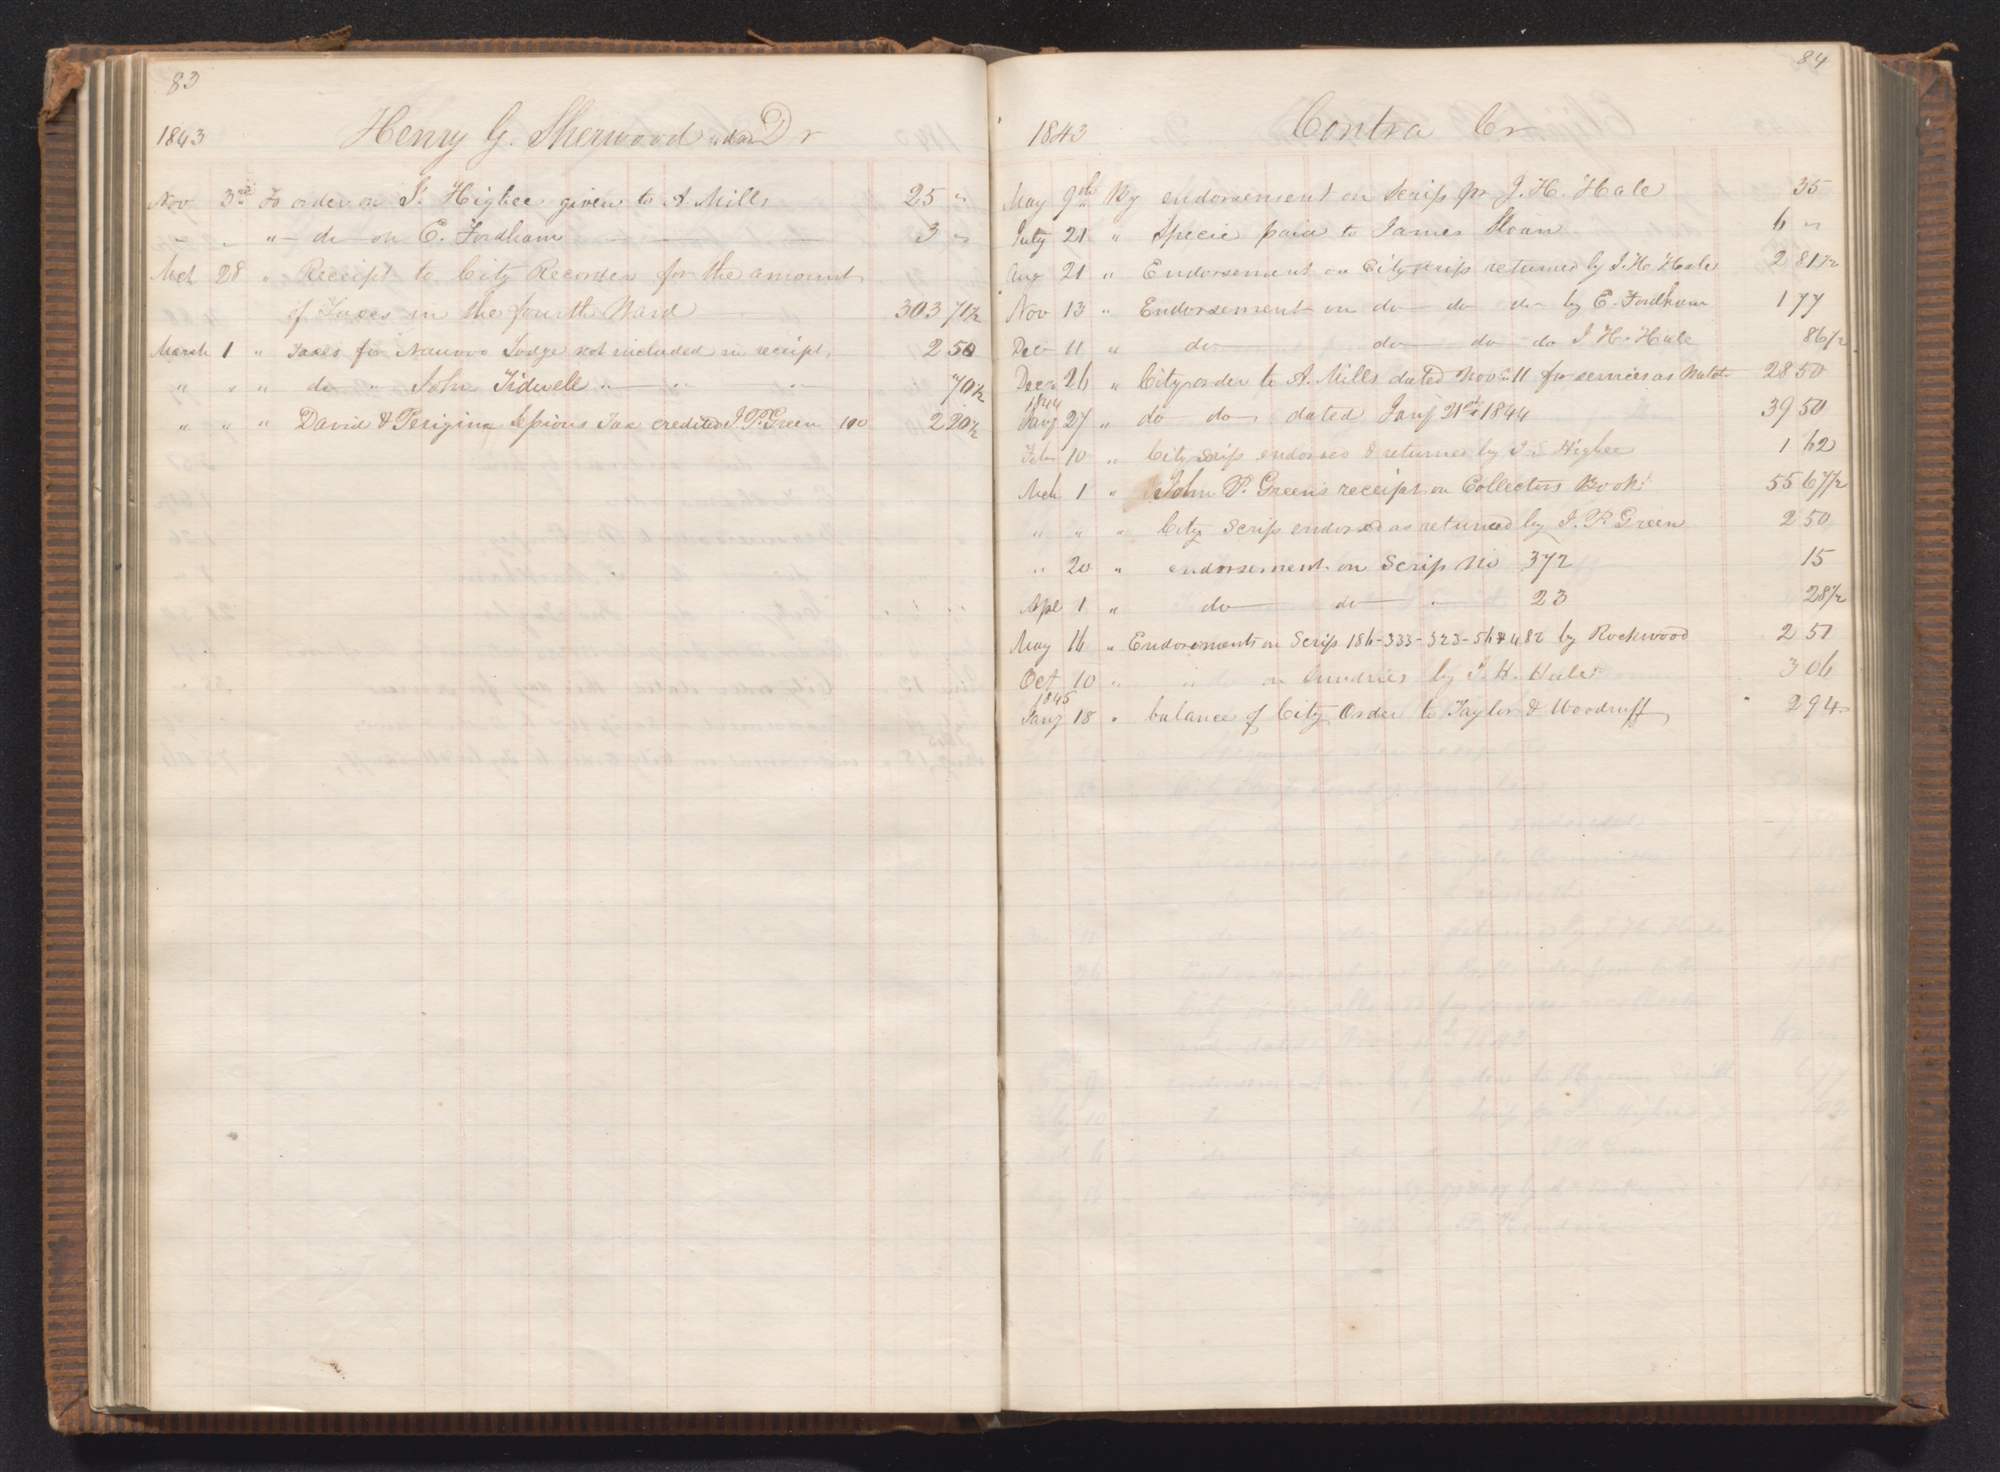 83
1843 Henry G. Sherwood Dr
Nov 3rd To order on I. Higbee given to A. Mills 25 "
" " " do on E. Fordham 3 "
Mch 28 " Receipt to City Recorder for the amount
of Taxes in the fourth Ward 303 71½
March 1 " Taxes for Nauvoo Lodge not included in receipt, 2 50
" " " do " John Tidwell " " " 70½
" " " David & Perigine Sessions Tax credited J. P. Green 100 2 20½
84
1843 Contra Cr
May 9th By endorsement on Scrip pr J. H. Hale 35
July 21 " Specie paid to James Sloan 6 "
Aug 21 " Endorsement on City scrip returned by J. H. Hale 2 81½
Nov 13 " Endorsement on do do do by E. Fordham 1 77
Dec 11 " do do do do J H. Hale 86½
Decr 26 " City order to A. Mills dated Nov. 11 for services as Watch 28 50
1844
Jany 27 " do do dated Jany 21st 1844 39 50
Feb 10 " City scrip endorsed & returned by I. S. Higbee 1 62
Mch 1 " John P. Green's receipt on Collectors Book 55 67½
" " " City Scrip endorsed as returned by J. P. Green 2 50
" 20 " endorsement on Scrip No 372 15
Apl 1 " do do " 23 28½
May 16 " Endorsements on Scrip 186-333-323-56 & 482 by Rockwood 2 51
Oct 10 " " on Sundries by J. H. Hale 3 06
1845
Jany 18 " balance of City Order to Taylor & Woodruff 2 94